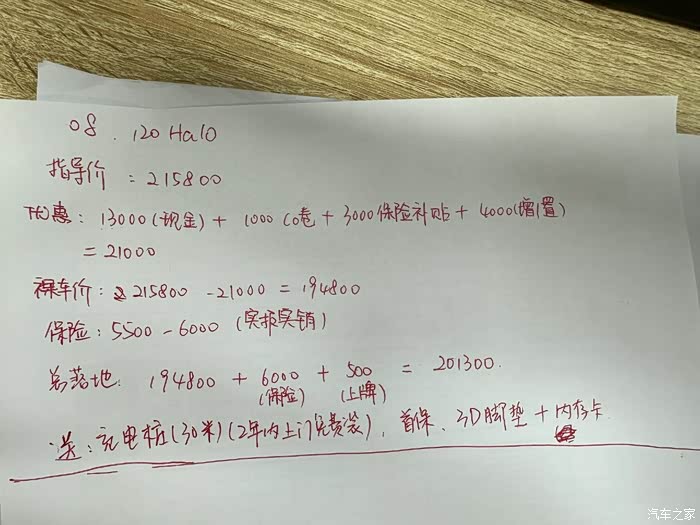 08 . 120 Halo
指导价 = 215800
优惠: 13000(现金) + 1000 CO卷 + 3000保险补贴 + 4000(增置)
= 21000
裸车价: 215800 - 21000 = 194800
保险: 5500 - 6000 (实报实销)
总落地: 194800 + 6000 + 500 = 201300.
(保险) (上牌)
送: 充电桩(30米)(2年内上门免费装), 首保、3D脚垫 + 内存卡
汽车之家